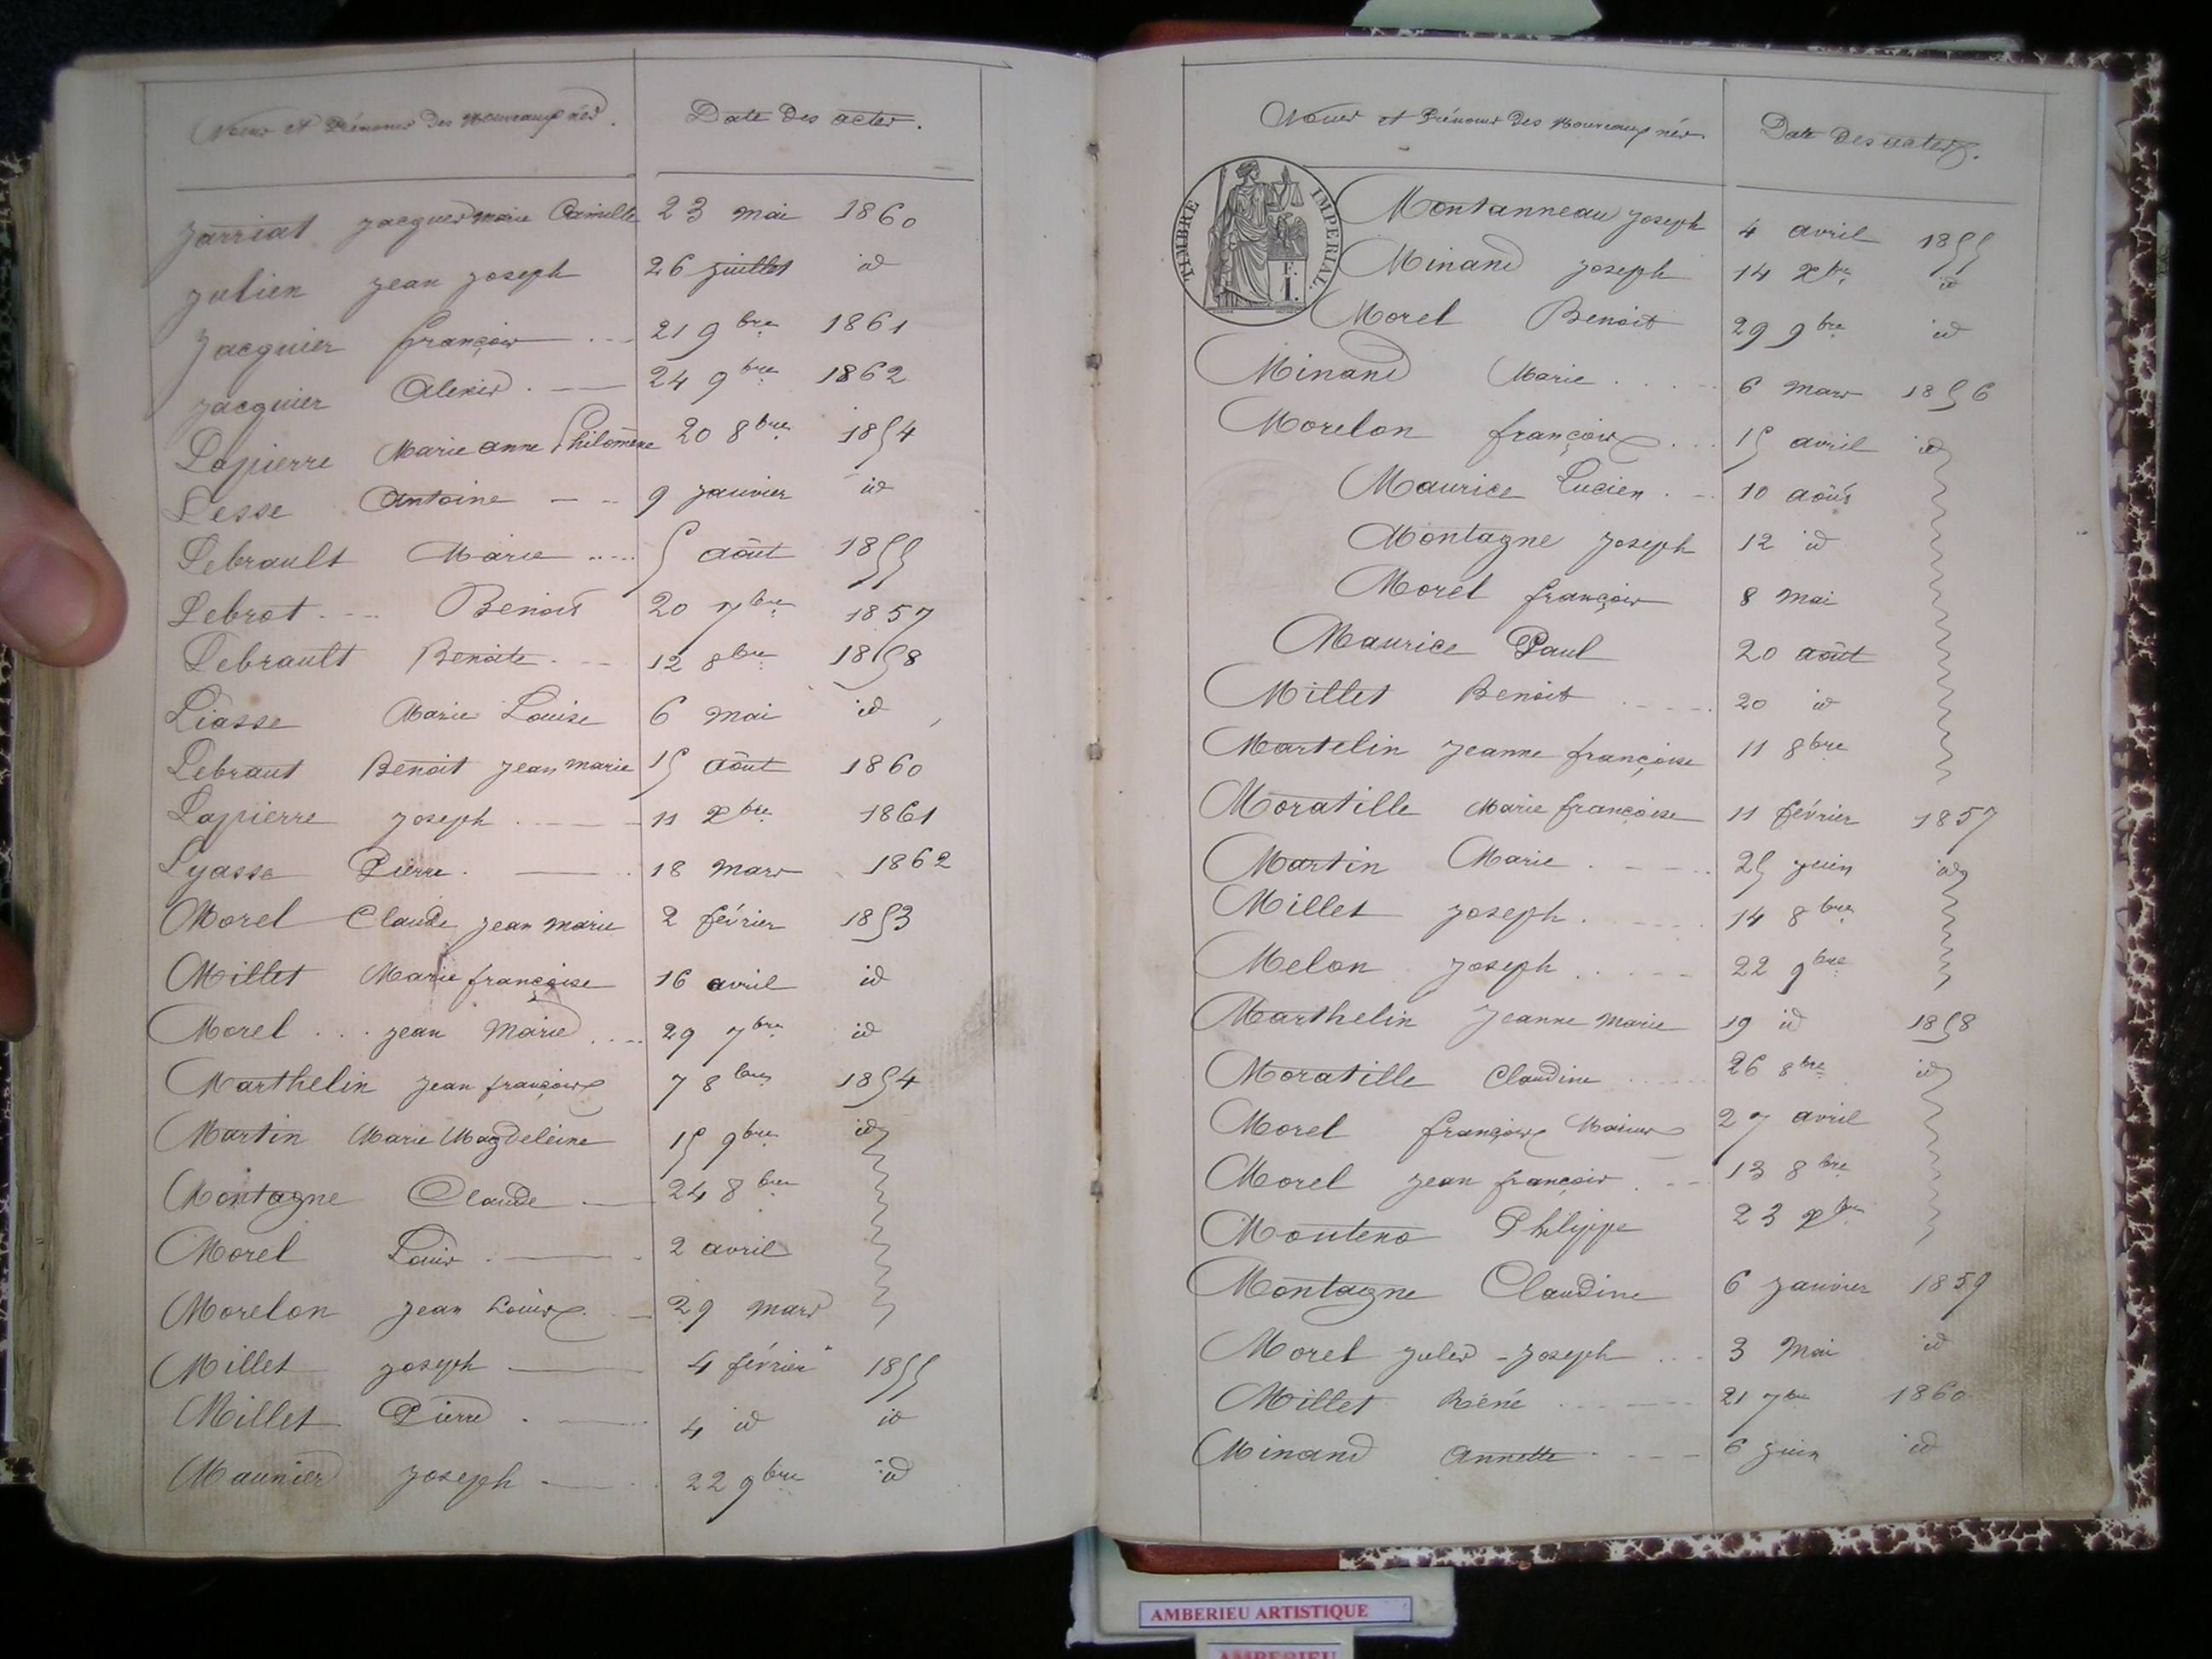 Noms et Prénoms des Nouveaux nés. Date des actes.
Jarriat Jacques Marie Camille 23 mai 1860
Julien Jean Joseph 26 juillet id
Jacquier François 21 9bre 1861
Jacquier Alexis 24 9bre 1862
Lapierre Marie Anne Philomène 20 8bre 1854
Lesse Antoine 9 janvier id
Lebrault Marie 5 août 1855
Lebrot Benoit 20 7bre 1857
Lebrault Benoite 12 8bre 1858
Liasse Marie Louise 6 mai id
Lebraut Benoit Jean Marie 15 août 1860
Lapierre Joseph 11 Xbre 1861
Lyasse Pierre 18 mars 1862
Morel Claude Jean Marie 2 février 1853
Millet Marie françoise 16 avril id
Morel Jean Marie 29 7bre id
Marthelin Jean françois 7 8bre 1854
Martin Marie Magdeleine 15 9bre id
Montagne Claude 24 8bre
Morel Louis 2 avril
Morelon Jean Louis 29 mars
Millet Joseph 4 février 1855
Millet Pierre 4 id id
Maunier Joseph 22 9bre id
Noms et Prénoms des Nouveaux nés. Date des actes.
TIMBRE IMPERIAL
F.
1.
Montanneau Joseph 4 avril 1855
Minand Joseph 14 Xbre id
Morel Benoit 29 9bre id
Minand Marie 6 mars 1856
Morelon françois 15 avril id
Maurice Lucien 10 août
Montagne Joseph 12 id
Morel françois 8 mai
Maurice Paul 20 août
Millet Benoit 20 id
Martelin Jeanne françoise 11 8bre
Moratille Marie françoise 11 février 1857
Martin Marie 25 juin id
Millet Joseph 14 8bre
Melon Joseph 22 9bre
Marthelin Jeanne Marie 19 id 1858
Moratille Claudine 26 8bre id
Morel françois Marius 27 avril
Morel Jean françois 13 8bre
Monteno Philippe 23 Xbre
Montagne Claudine 6 janvier 1859
Morel Jules-Joseph 3 mai id
Millet Réné 21 7bre 1860
Minand Annette 6 juin id
AMBERIEU ARTISTIQUE
AMBERIEU